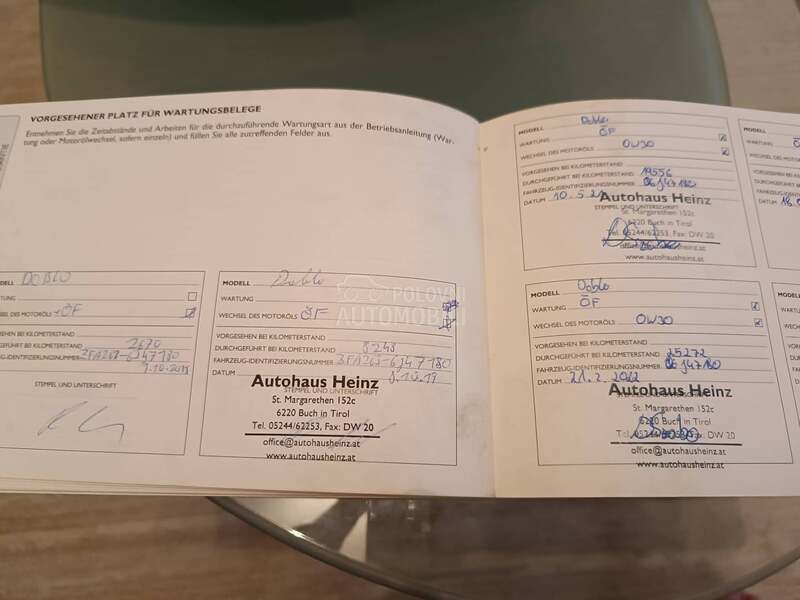 VORGESEHENER PLATZ FÜR WARTUNGSBELEGE
Entnehmen Sie die Zeitabstände und Arbeiten für die durchzuführende Wartungsart aus der Betriebsanleitung (War-
tung oder Motorölwechsel, sofern einzeln) und füllen Sie alle zutreffenden Felder aus.
DOBLO
ÖF
VORGESEHEN BEI KILOMETERSTAND
2670
STEMPEL UND UNTERSCHRIFT
MODELL Doblo
WARTUNG
WECHSEL DES MOTORÖLS ÖF
VORGESEHEN BEI KILOMETERSTAND
DURCHGEFÜHRT BEI KILOMETERSTAND 8243
FAHRZEUG-IDENTIFIZIERUNGSNUMMER
DATUM
Autohaus Heinz
STEMPEL UND UNTERSCHRIFT
St. Margarethen 152c
6220 Buch in Tirol
Tel. 05244/62253, Fax: DW 20
office@autohausheinz.at
www.autohausheinz.at
POLOVNI
AUTOMOBILI
MODELL Doblo
WARTUNG ÖF
WECHSEL DES MOTORÖLS OW30
VORGESEHEN BEI KILOMETERSTAND
DURCHGEFÜHRT BEI KILOMETERSTAND 19556
FAHRZEUG-IDENTIFIZIERUNGSNUMMER 06J47180
DATUM 10.5.21
Autohaus Heinz
STEMPEL UND UNTERSCHRIFT
St. Margarethen 152c
6220 Buch in Tirol
Tel. 05244/62253, Fax: DW 20
www.autohausheinz.at
MODELL Doblo
WARTUNG ÖF
WECHSEL DES MOTORÖLS OW30
VORGESEHEN BEI KILOMETERSTAND
DURCHGEFÜHRT BEI KILOMETERSTAND 25272
FAHRZEUG-IDENTIFIZIERUNGSNUMMER 06J47180
DATUM 21.2.2022
Autohaus Heinz
St. Margarethen 152c
6220 Buch in Tirol
Fax: DW 20
office@autohausheinz.at
www.autohausheinz.at